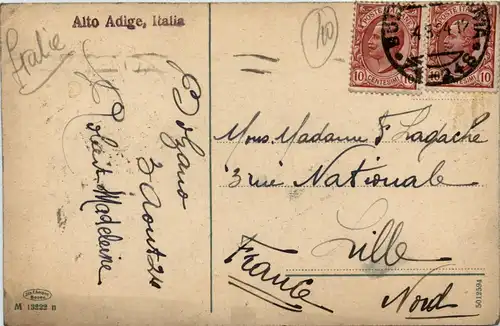 Alto Adige, Italia
Italie
40
POSTE ITALIANE
10 CENTESIMI 10
POSTE ITALIANE
CENTESIMI 10
Bolzano
3 Aout 24
Madeleine
Mons. Madame P. Lagache
3 rue Nationale
Lille
France
Nord
M 13323 n
5012594